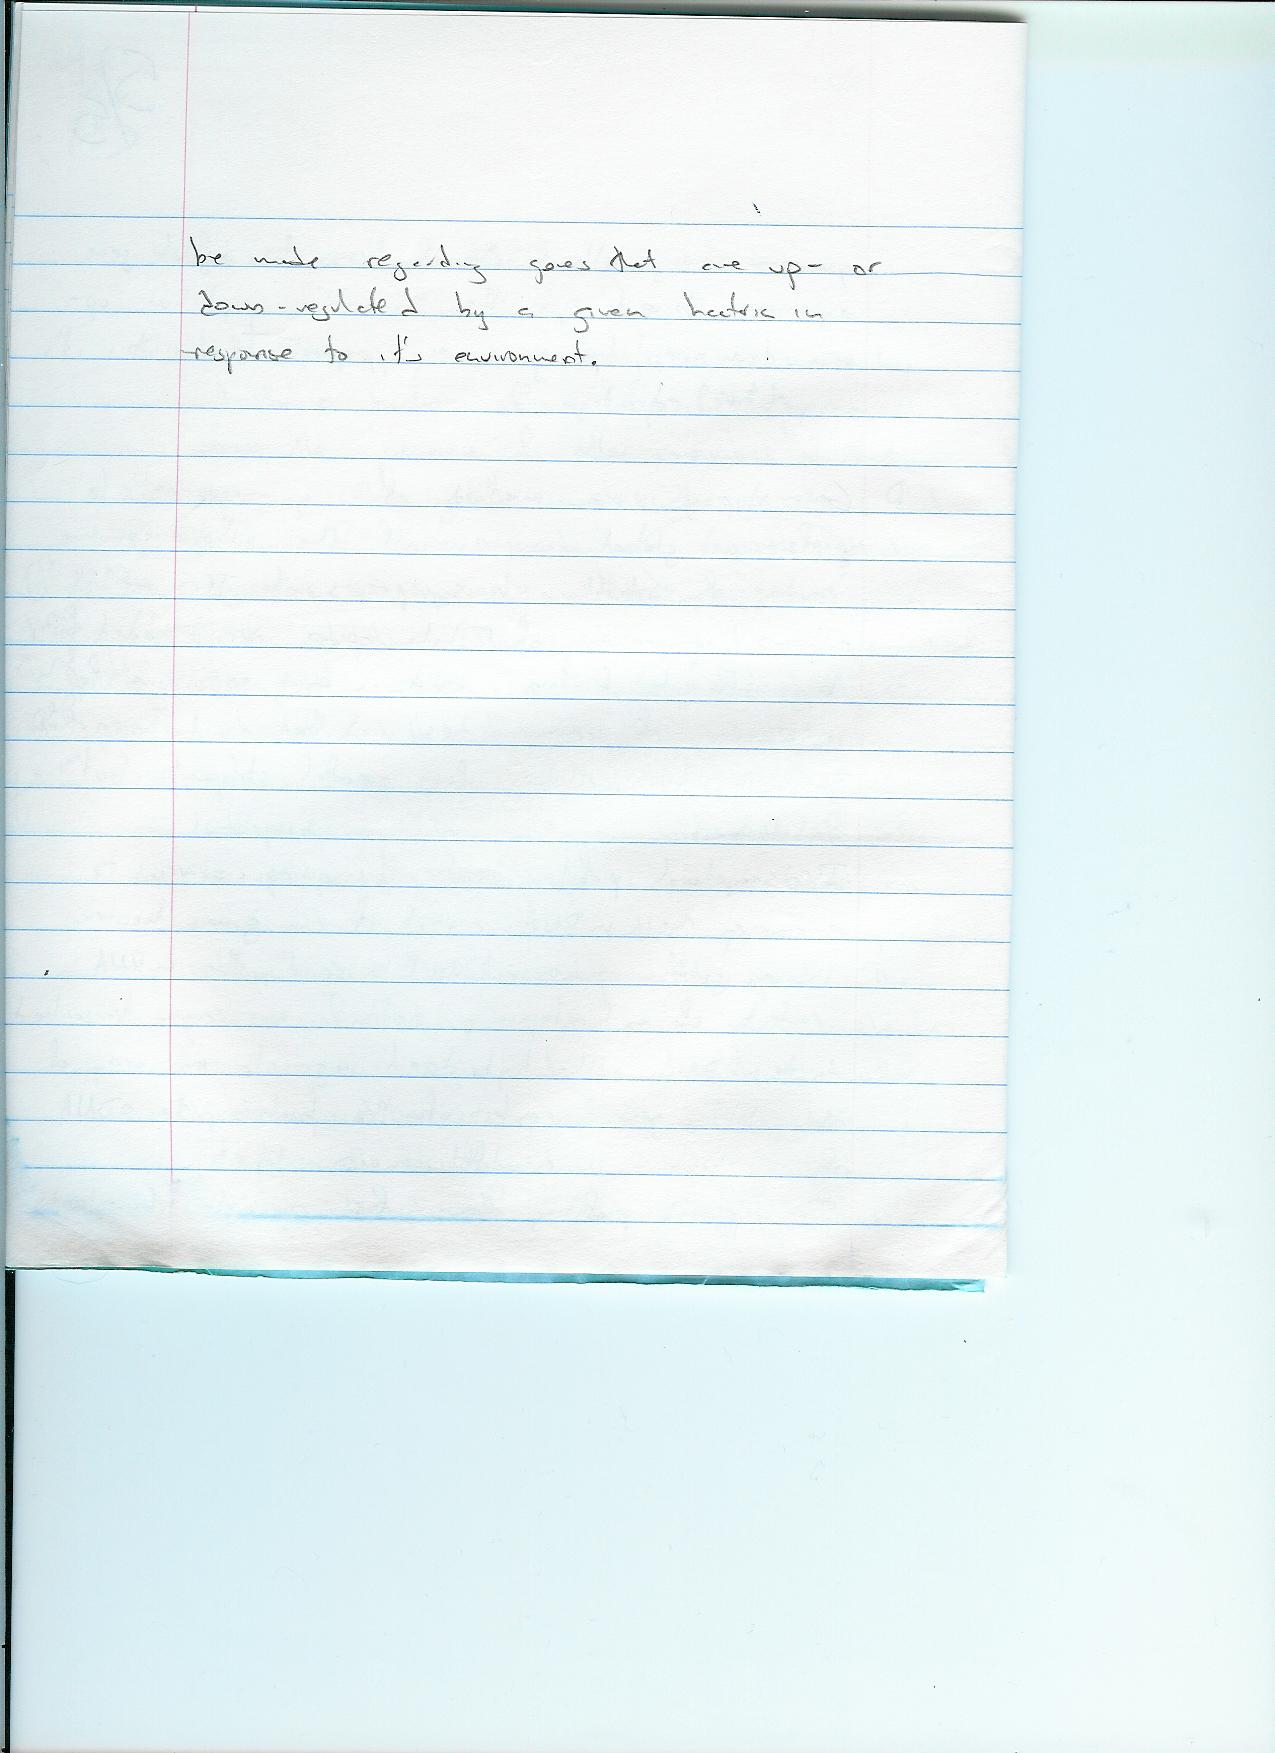 be made regarding genes that are up- or
down-regulated by a given bacteria in
response to it's environment.